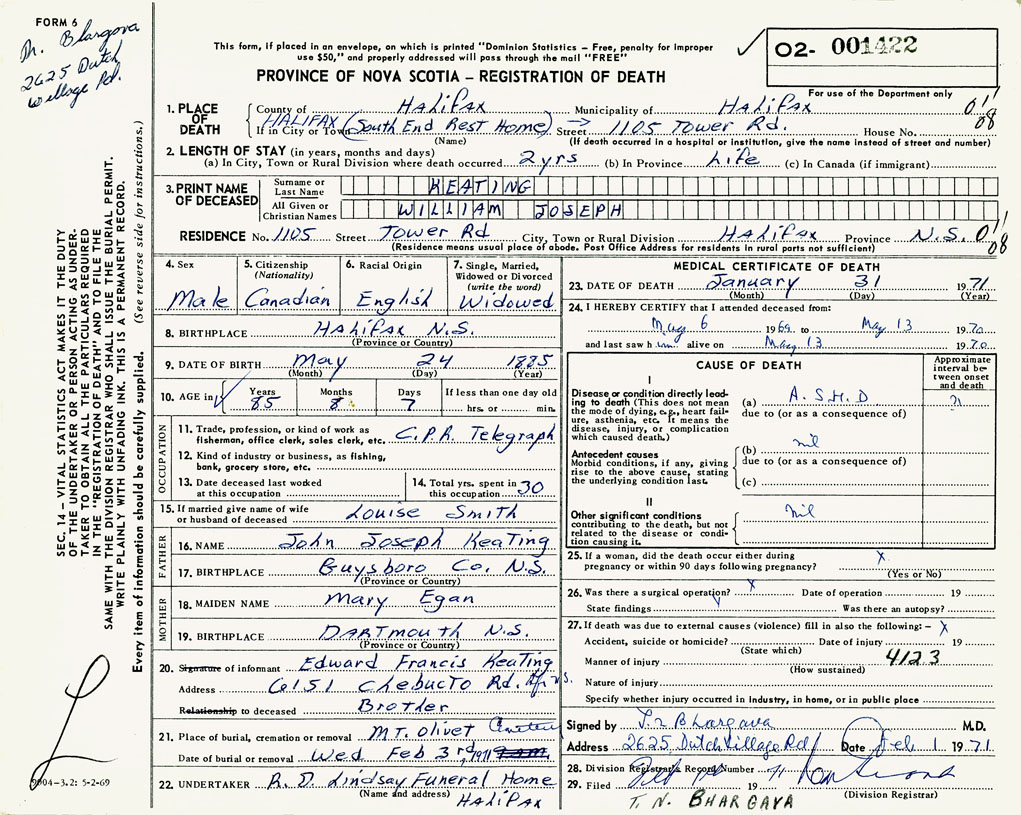 FORM 6
M. Bhargova
2625 Dutch
Village Rd.
This form, if placed in an envelope, on which is printed "Dominion Statistics – Free, penalty for improper
use $50," and properly addressed will pass through the mail "FREE"
PROVINCE OF NOVA SCOTIA – REGISTRATION OF DEATH
02- 001422
For use of the Department only
1. PLACE OF DEATH
County of HALIFAX Municipality of HALIFAX 01
08
HALIFAX
If in City or Town (South End Rest Home) → Street 1105 Tower Rd. House No.
(Name) (If death occurred in a hospital or institution, give the name instead of street and number)
2. LENGTH OF STAY (in years, months and days)
(a) In City, Town or Rural Division where death occurred 2 yrs (b) In Province Life (c) In Canada (if immigrant)
3. PRINT NAME OF DECEASED
Surname or Last Name KEATING
All Given or Christian Names WILLIAM JOSEPH
RESIDENCE No. 1105 Street Tower Rd City, Town or Rural Division HALIFAX Province N.S. 01
08
(Residence means usual place of abode. Post Office Address for residents in rural parts not sufficient)
4. Sex Male
5. Citizenship (Nationality) Canadian
6. Racial Origin English
7. Single, Married, Widowed or Divorced (write the word) Widowed
8. BIRTHPLACE HALIFAX N.S.
(Province or Country)
9. DATE OF BIRTH May 24 1885
(Month) (Day) (Year)
10. AGE in Years 85 Months 8 Days 7 If less than one day old hrs. or min.
OCCUPATION
11. Trade, profession, or kind of work as fisherman, office clerk, sales clerk, etc. C.P.R. Telegraph
12. Kind of industry or business, as fishing, bank, grocery store, etc.
13. Date deceased last worked at this occupation
14. Total yrs. spent in this occupation 30
15. If married give name of wife or husband of deceased Louise Smith
FATHER
16. NAME John Joseph Keating
17. BIRTHPLACE Guysboro Co. N.S.
(Province or Country)
MOTHER
18. MAIDEN NAME Mary Egan
19. BIRTHPLACE DARTMOUTH N.S.
(Province or Country)
20. Signature of informant Edward Francis Keating
Address 6151 Chebucto Rd. Hfx N.S.
Relationship to deceased Brother
21. Place of burial, cremation or removal MT. Olivet
Date of burial or removal Wed Feb 3rd, 1971 9 a.m.
22. UNDERTAKER R. D. Lindsay Funeral Home
(Name and address) HALIFAX
MEDICAL CERTIFICATE OF DEATH
23. DATE OF DEATH January 31 1971
(Month) (Day) (Year)
24. I HEREBY CERTIFY that I attended deceased from:
May 6 1969 to May 13 1970
and last saw him alive on May 13 1970
CAUSE OF DEATH
Approximate interval between onset and death
I
Disease or condition directly leading to death (This does not mean the mode of dying, e.g., heart failure, asthenia, etc. It means the disease, injury, or complication which caused death.)
(a) A.S.H.D
due to (or as a consequence of)
Antecedent causes
Morbid conditions, if any, giving rise to the above cause, stating the underlying condition last.
(b) nil
due to (or as a consequence of)
(c)
II
Other significant conditions
contributing to the death, but not related to the disease or condition causing it.
nil
25. If a woman, did the death occur either during pregnancy or within 90 days following pregnancy? x
(Yes or No)
26. Was there a surgical operation? x Date of operation 19
State findings Was there an autopsy?
27. If death was due to external causes (violence) fill in also the following: – x
Accident, suicide or homicide? Date of injury 19
(State which)
Manner of injury 4123
(How sustained)
Nature of injury
Specify whether injury occurred in Industry, in home, or in public place
Signed by T. N. Bhargava M.D.
Address 2625 Dutch Village Rd Date Feb 1 1971
28. Division Registrar's Record Number
29. Filed 19 71
(Division Registrar)
T. N. BHARGAVA
SEC. 14 – VITAL STATISTICS ACT MAKES IT THE DUTY
OF THE UNDERTAKER OR PERSON ACTING AS UNDER-
TAKER TO OBTAIN ALL THE PARTICULARS REQUIRED
IN THE "REGISTRATION OF DEATH" AND TO FILE THE
SAME WITH THE DIVISION REGISTRAR WHO SHALL ISSUE THE BURIAL PERMIT.
WRITE PLAINLY WITH UNFADING INK. THIS IS A PERMANENT RECORD.
Every item of information should be carefully supplied. (See reverse side for instructions.)
9904-3.2: 5-2-69